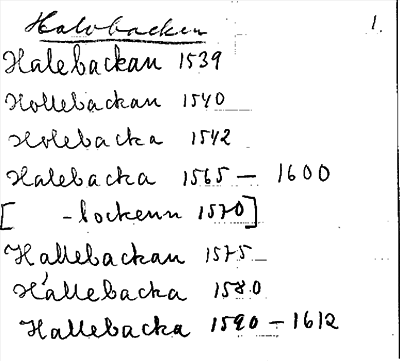 Halvbacken
1.
Halebackan 1539
Hollebackan 1540
Holebacka 1542
Halebacka 1565 — 1600
[ -backenn 1570]
Hallebackan 1575
Hållebacka 1580
Hallebacka 1590 — 1612